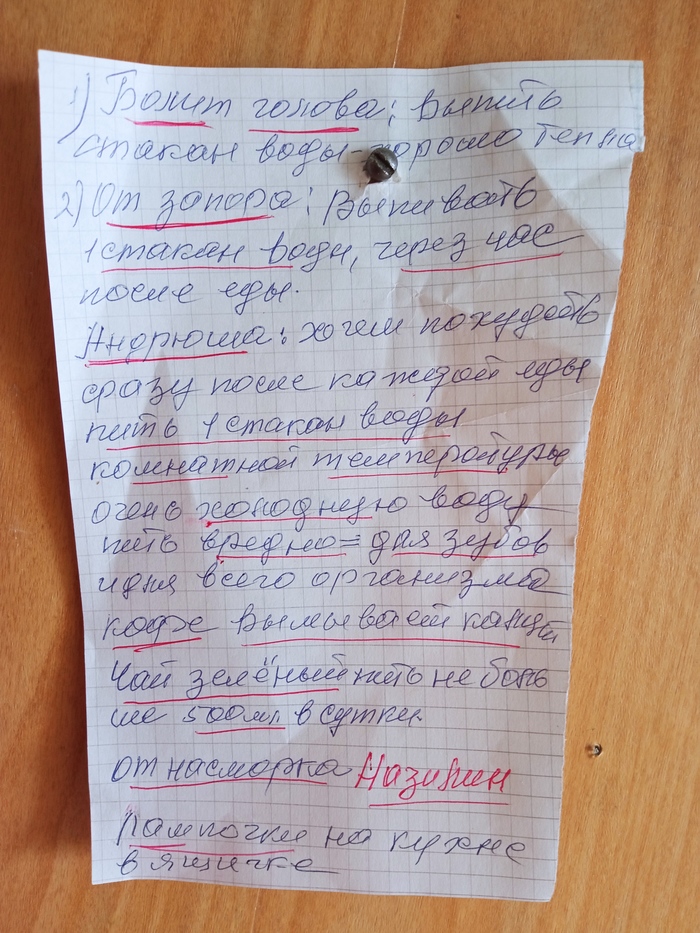 1) Болит голова: выпить
стакан воды - хорошо тепла
2) От запора: Выпивать
1 стакан воды, через час
после еды.
Андрюша: хочем похудеть
сразу после каждой еды
пить 1 стакан воды
комнатной температуры
очень холодную воду
пить вредно = для зубов
и для всего организма
кофе вымывает кальций
Чай зелёный пить не боль
ше 500мл в сутки
от насморка Називин
Лампочки на кухне
в ящичке